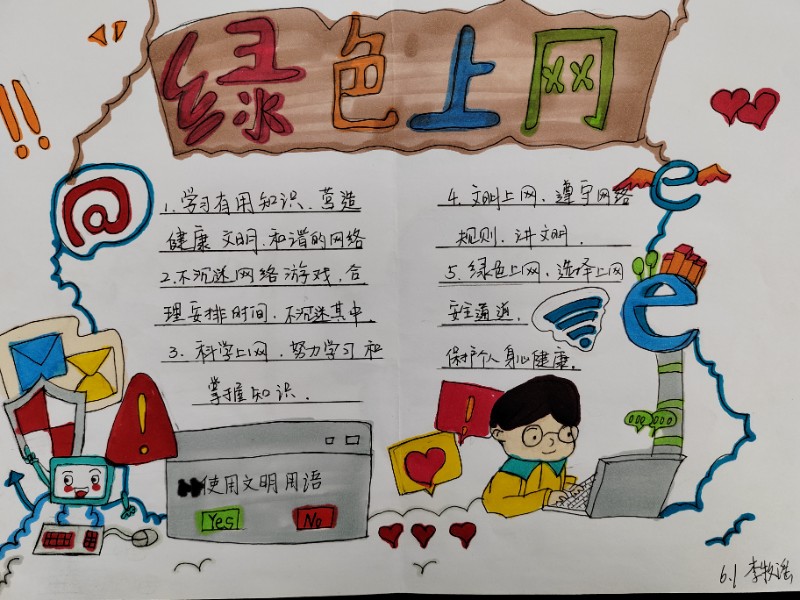 绿色上网
@
1.学习有用知识、营造
健康 文明、和谐的网络
2.不沉迷网络游戏、合
理安排时间、不沉迷其中.
3. 科学上网、努力学习和
掌握知识.
4. 文明上网、遵守网络
规则、讲文明.
5. 绿色上网、选择上网
安全通道.
保护个人身心健康.
e
e
使用文明用语
Yes
No
6.1 李牧遥